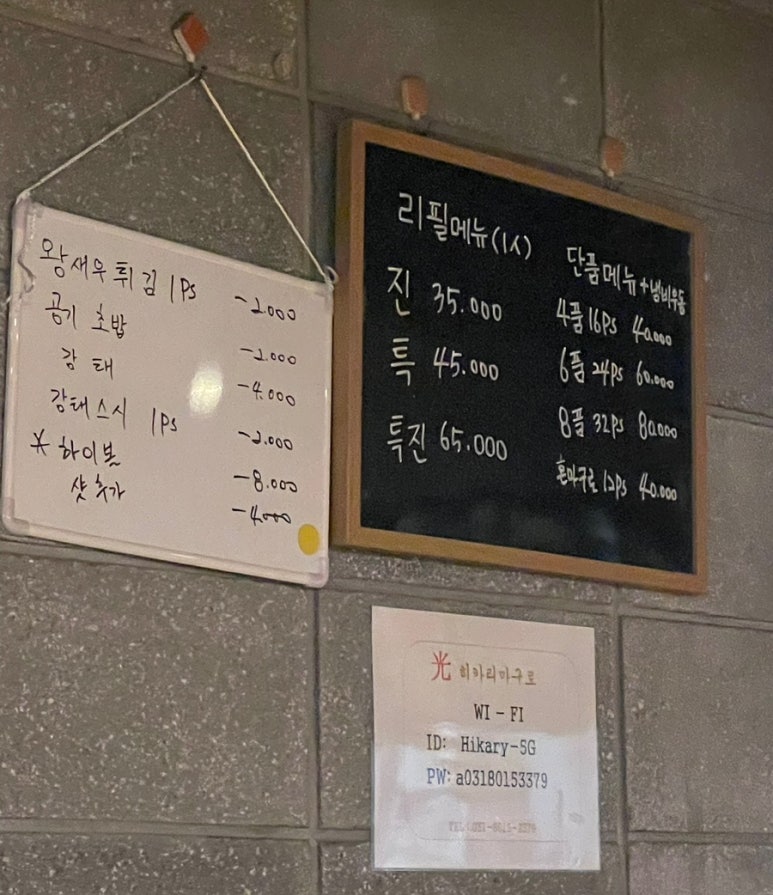 왕새우튀김 1Ps -2.000
공기 초밥 -2.000
감태 -4.000
감태스시 1Ps -2.000
* 하이볼 -8.000
샷추가 -4.000
리필메뉴(1人)
진 35.000
특 45.000
특진 65.000
단품메뉴+냄비우동
4품 16Ps 40.000
6품 24Ps 60.000
8품 32Ps 80.000
혼마구로 12Ps 40.000
光 히카리마구로
WI-FI
ID: Hikary-5G
PW: a03180153379